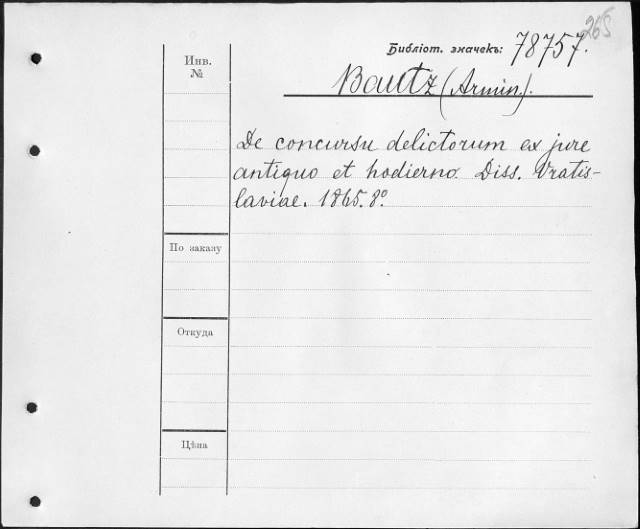 265
Библіот. значекъ: 78757.
Инв.
№
Bautz (Armin).
De concursu delictorum ex jure
antiquo et hodierno. Diss. Vratis-
laviae. 1865. 8º
По заказу
Откуда
Цѣна